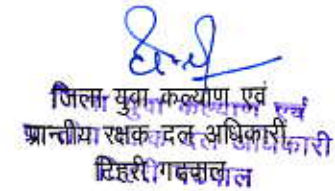 जिला युवा कल्याण एवं
प्रान्तीय रक्षक दल अधिकारी
टिहरी गढ़वाल